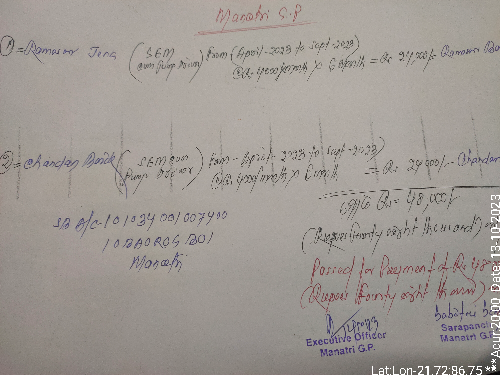 Manatri G.P
① = Ramaswar Jena (SEM cum Pump Driver) From (April-2023 to Sept-2023)
@Rs 4000/month × 6 Month = Rs 24,000/-
② = Chandan Barik (SEM cum Pump Driver) from - April - 2023 to Sept - 2023
@Rs 4000/month × 6 month = Rs 24000/- Chandan
Rs = 48,000/-
SB A/c - 101934001007400
IOBA0ROGB01
Manatri
(Rupees Fourty eight thousand)
Passed for Payment of Rs 48
(Rupees Fourty eight thousand)
Executive Officer
Manatri G.P.
Sarapanch
Manatri G.P
Lat:Lon-21.72:86.75 ***Acur:20.00 Date: 13-10-2023